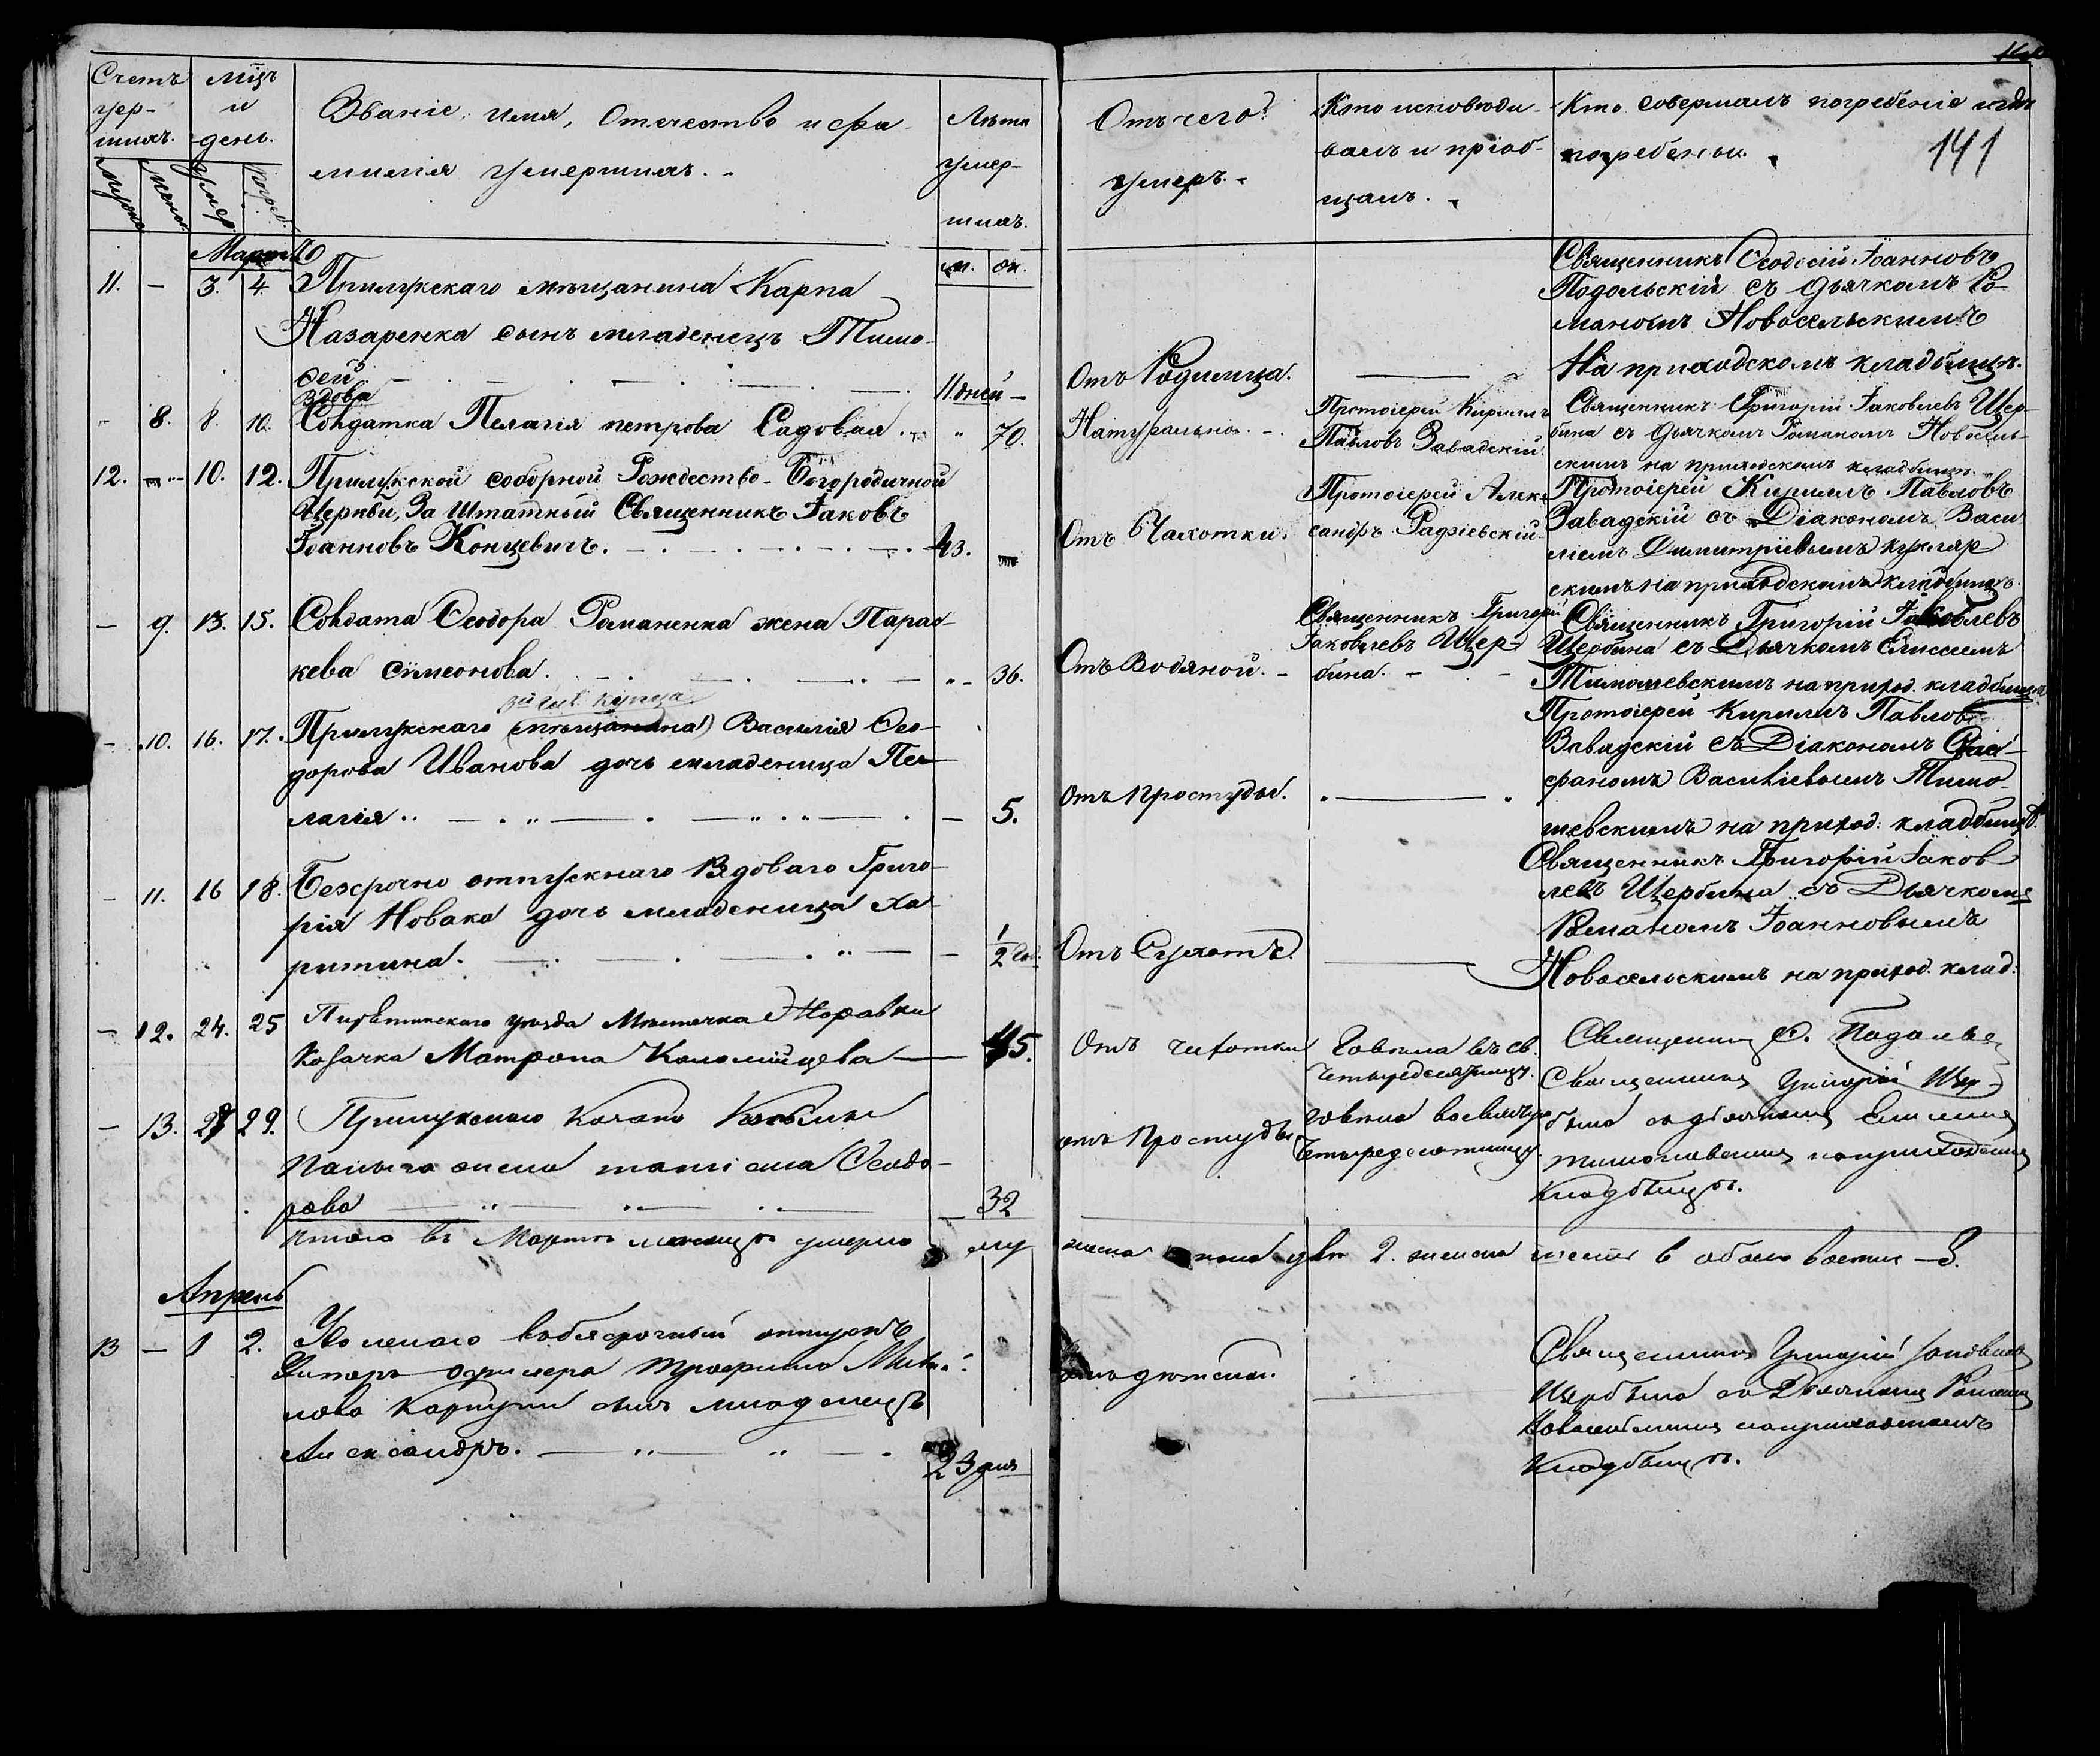 Счетъ умер- шихъ.
Мцъ и день.
Званіе, имя, Отечество и фа-
милія умершихъ.
Лѣта умер- шихъ.
Отъ чего умеръ.
Кто исповѣды-
валъ и пріоб-
щалъ.
Кто совершалъ погребеніе и гдѣ
погребены.
141
мужс. женс. умер. погреб.
м. ж.
Мартъ
11. — 3. 4. Прилукскаго мѣщанина Карпа
Назаренка сынъ младенецъ Тимо-
ѳей 11. дней —
Отъ Родимца.
Священникъ Ѳеодосій Іоанновъ
Подольскій съ дьячкомъ Ро-
маномъ Новосельскимъ
На приходскомъ кладбищѣ.
вдова
8. 8. 10. Солдатка Пелагія петрова Садовая. 70.
Натурально.
Протоіерей Кириллъ
Павловъ Завадскій.
Священникъ Григорій Іаковлевъ Щер-
бина съ Дьячкомъ Романомъ Новосель-
скимъ на приходскомъ кладбищѣ.
12. — 10. 12. Прилукской соборной Рождество-Богородичной
Церкви, За Штатный Священникъ Іаковъ
Іоанновъ Концевичъ. 43.
Отъ Чахотки.
Протоіерей Алек-
сандръ Радзіевскій
Протоіерей Кириллъ Павловъ
Завадскій съ Діакономъ Васи-
ліемъ Димитріевымъ Кукляр
скимъ на приходскомъ кладбищѣ.
— 9. 13. 15. Солдата Ѳеодора Романенка жена Парас-
кева Симеонова. 36.
Отъ Водяной.
Священникъ Григорій
Іаковлевъ Щер-
бина.
Священникъ Григорій Іаковлевъ
Щербина съ Дьячкомъ Елисеемъ
Тимошевскимъ на приход. кладбищѣ
гил. купца
— 10. 16. 17. Прилукскаго (мѣщанина) Василія Ѳео-
дорова Иванова дочь младеница Пе-
лагія 5.
Отъ Простуды.
Протоіерей Кириллъ Павлов
Завадскій съ Діакономъ
фаномъ Василіевымъ Тимо-
шевскимъ на приход. кладбищѣ.
— 11. 16 18. Безсрочно отпускнаго Рядоваго Григо-
рія Новака дочь младеница Ха-
ритина. 1/2 год.
Отъ Сухотъ.
Священникъ Григорій Іаков
левъ Щербина съ Дьячкомъ
Романомъ Іоанновымъ
Новосельскимъ на приход. клад:
— 12. 24. 25 Пирятинскаго уѣзда Мѣстечка Журавки
Козачка Матрона Коломійцева — 45.
Отъ чихотки
Говѣла въ св.
четыредесятницу.
Священник Ѳ. Подольск
— 13. 27 29. Прилукскаго Козака
жена Ѳеодо-
рова 32
отъ Простуды
говѣла во св.
Четыредесятницу.
Священникъ Григорій Щер-
бина съ дьячкомъ Елисеемъ
Тимошевскимъ на приходскомъ
Кладбищѣ.
Итого въ Мартѣ мѣсяцѣ умерло муж
два 2. женска шесть 6 обоего восемь — 8.
Апрель
13 — 1 2. Уволенаго въ безсрочный отпускъ
Унтеръ-офицера Трофима
сынъ младенецъ
Александръ. 23 дня
Священникъ Григорій Іаковлевъ
Щербина съ Дьячкомъ Романомъ
Новосельскимъ на приходскомъ
Кладбищѣ.